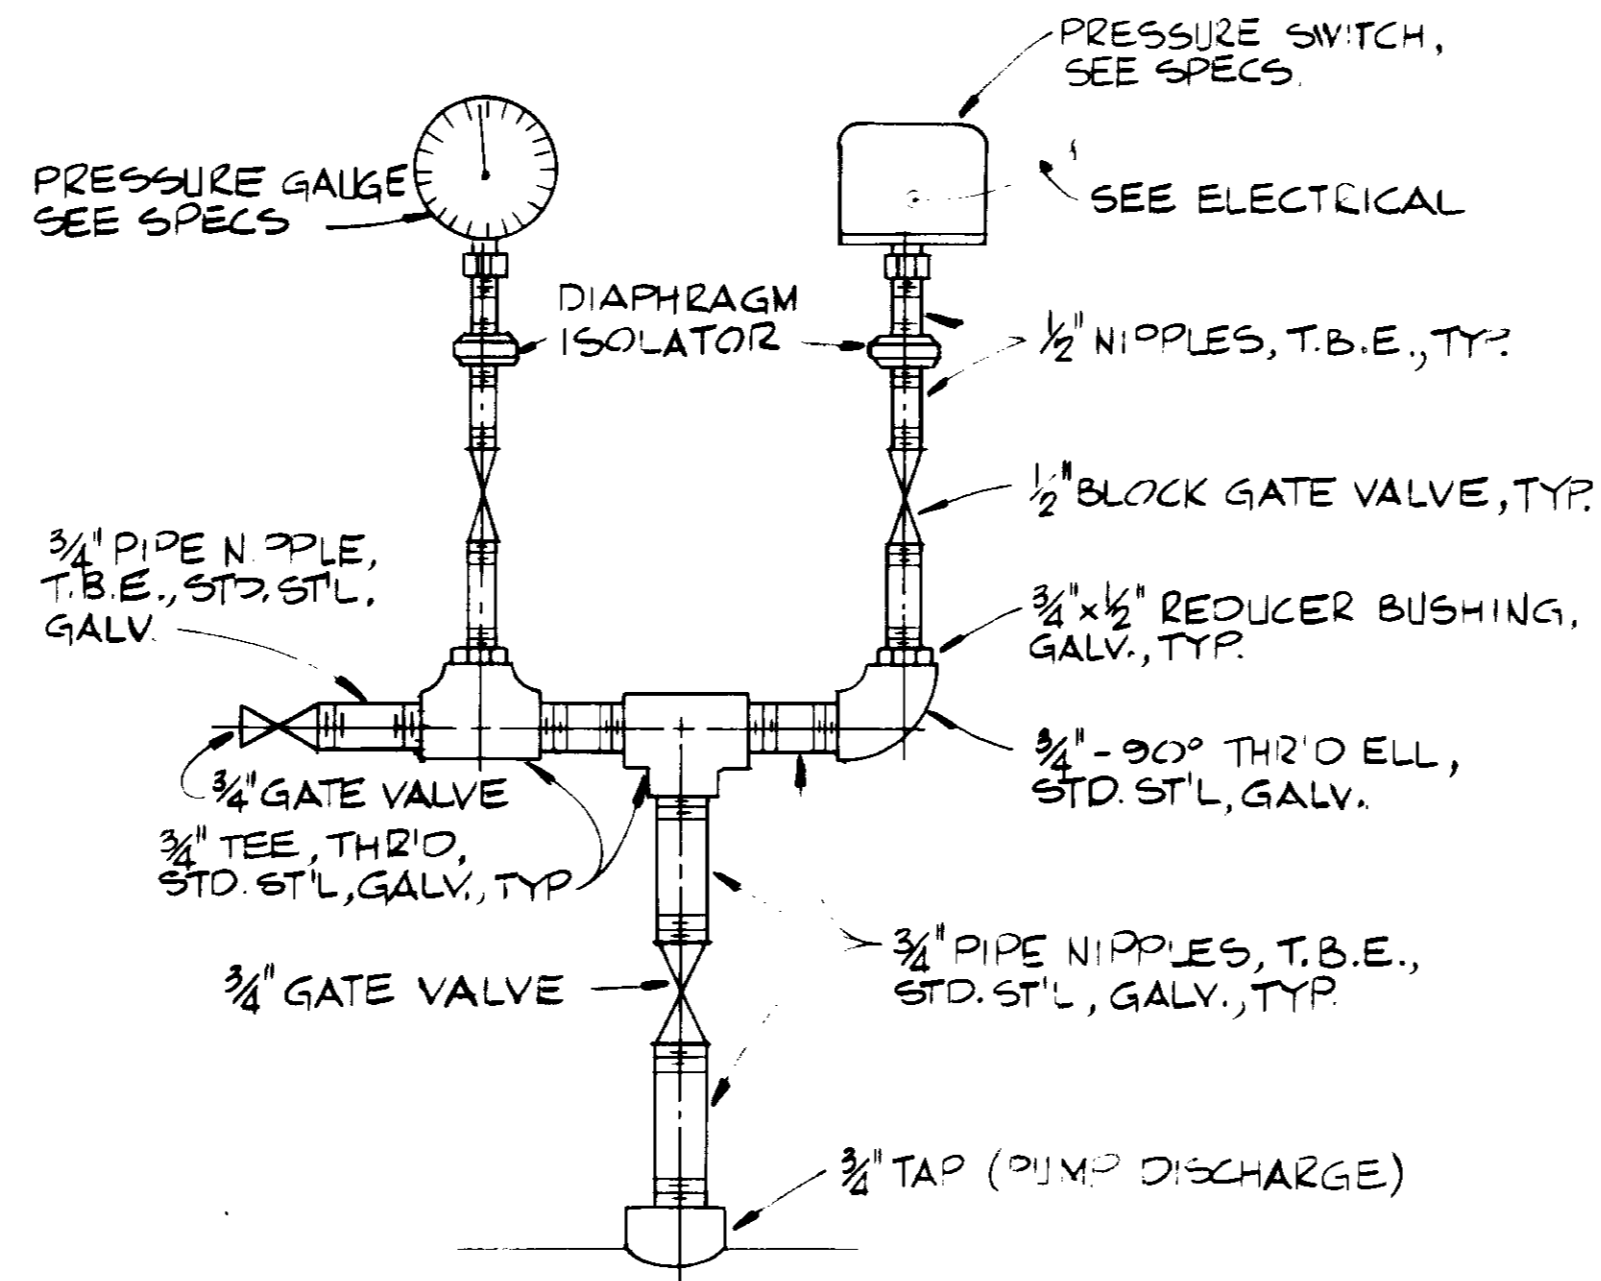 PRESSURE SWITCH,
SEE SPECS.
PRESSURE GAUGE
SEE SPECS
SEE ELECTRICAL
DIAPHRAGM
ISOLATOR
1/2" NIPPLES, T.B.E., TYP.
1/2" BLOCK GATE VALVE, TYP.
3/4" PIPE NIPPLE,
T.B.E., STD. ST'L.
GALV.
3/4" x 1/2" REDUCER BUSHING,
GALV., TYP.
3/4" - 90° THR'D ELL,
STD. ST'L, GALV.
3/4" GATE VALVE
3/4" TEE, THR'D,
STD. ST'L, GALV., TYP
3/4" PIPE NIPPLES, T.B.E.,
STD. ST'L, GALV., TYP.
3/4" GATE VALVE
3/4" TAP (PUMP DISCHARGE)